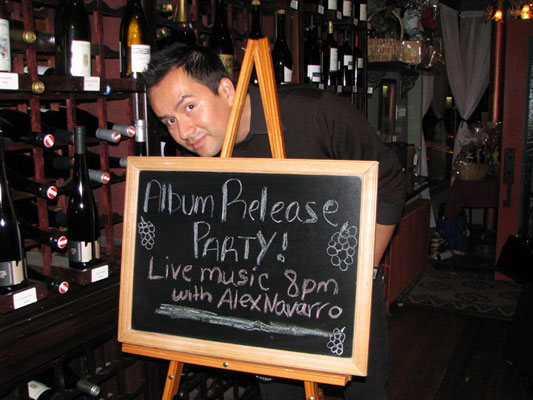 Album Release
PARTY!
Live music 8pm
with Alex Navarro